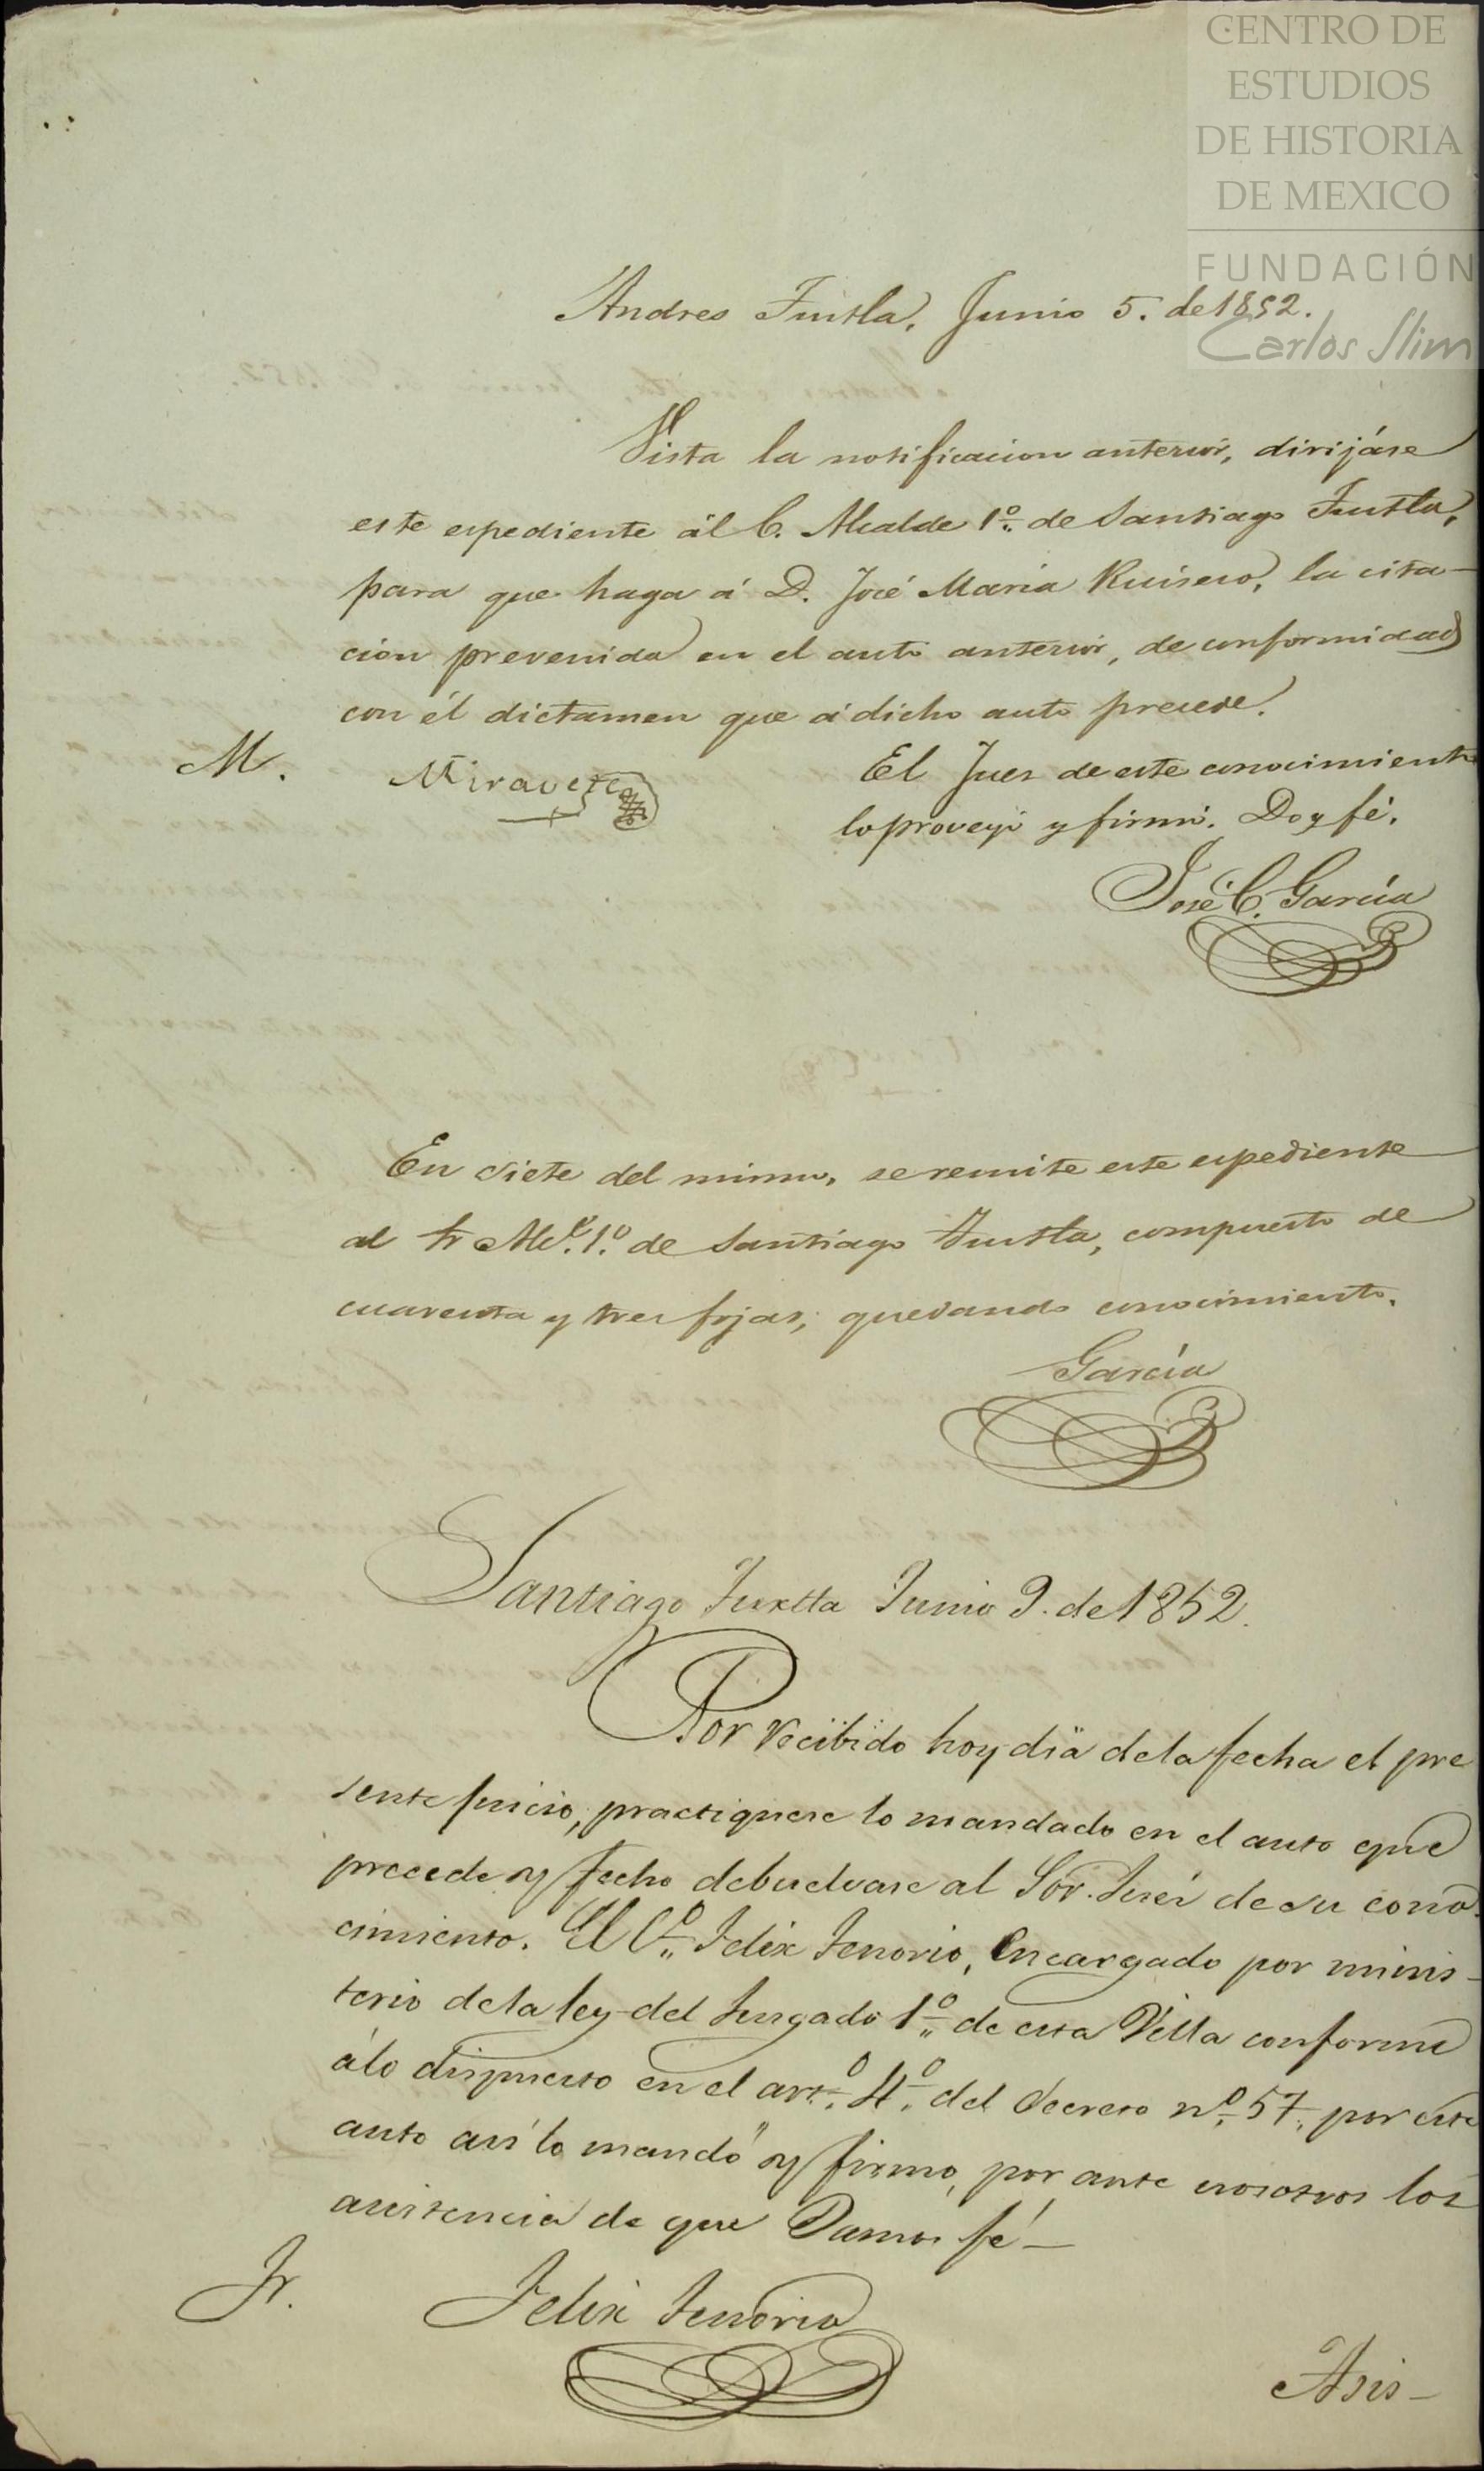 CENTRO DE
ESTUDIOS
DE HISTORIA
DE MEXICO
FUNDACIÓN
Carlos Slim
Andres Tuxtla, Junio 5. de 1852.
Vista la notificacion anterior, dirijáse
este espediente ál C. Alcalde 1º de Santiago Tuxtla,
para que haga á D. José Maria Ruisero, la cita-
cion prevenida en el auto anterior, de conformidad
con él dictamen que á dicho auto precede.
M.
Miravete
El Juez de este conocimiento
lo proveyó y firmó. Doy fé.
José C. García
En siete del mismo, se remite este espediente
al Sr Alc.e 1.º de Santiago Tuxtla, compuesto de
cuarenta y tres fojas, quedando conocimiento.
García
Santiago Tuxtla Junio 9. de 1852.
Por recibido hoy dia de la fecha el pre
sente juicio, practiquese lo mandado en el auto que
precede y fecho debuelvase al Sor. Juéz de su cono-
cimiento. El Cº Felix Tenorio, Encargado por minis-
terio de la ley del Jusgado 1º de esta Villa conforme
álo dispuesto en el artº 4º del decreto nº 57, por este
auto así lo mandó y firmo, por ante nosotros los
asistencia de que Damos fé—
Jr.
Felix Tenorio
Asis-